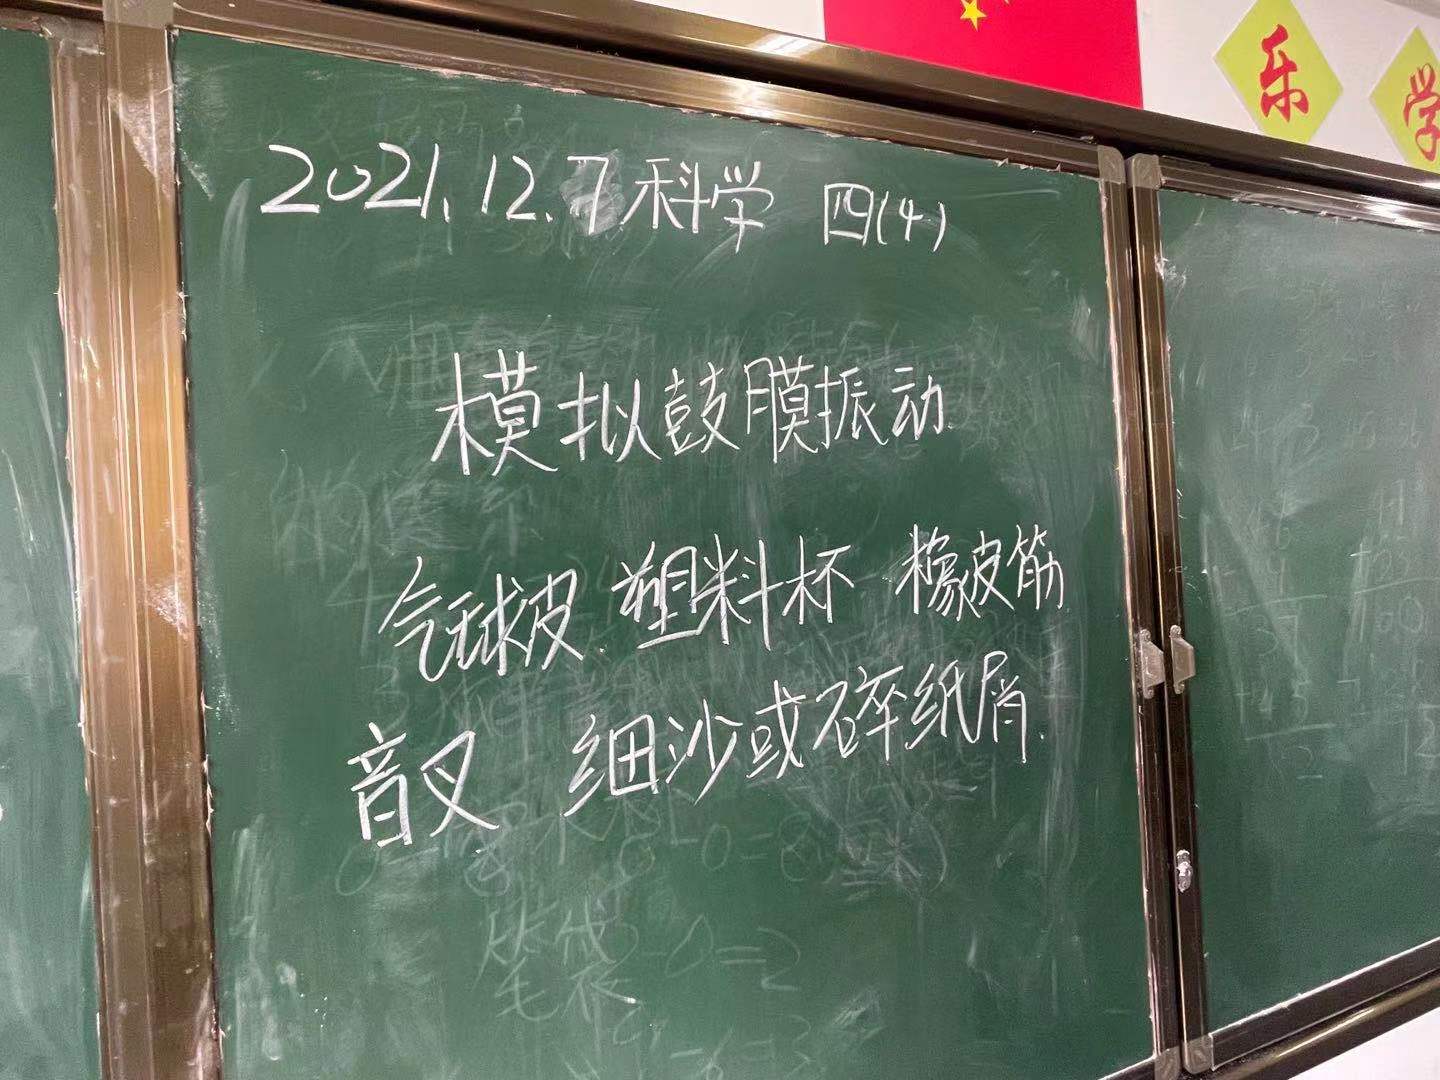 乐
学
2021.12.7 科学 四(4)
模拟鼓膜振动
气球皮 塑料杯 橡皮筋
音叉 细沙或碎纸屑